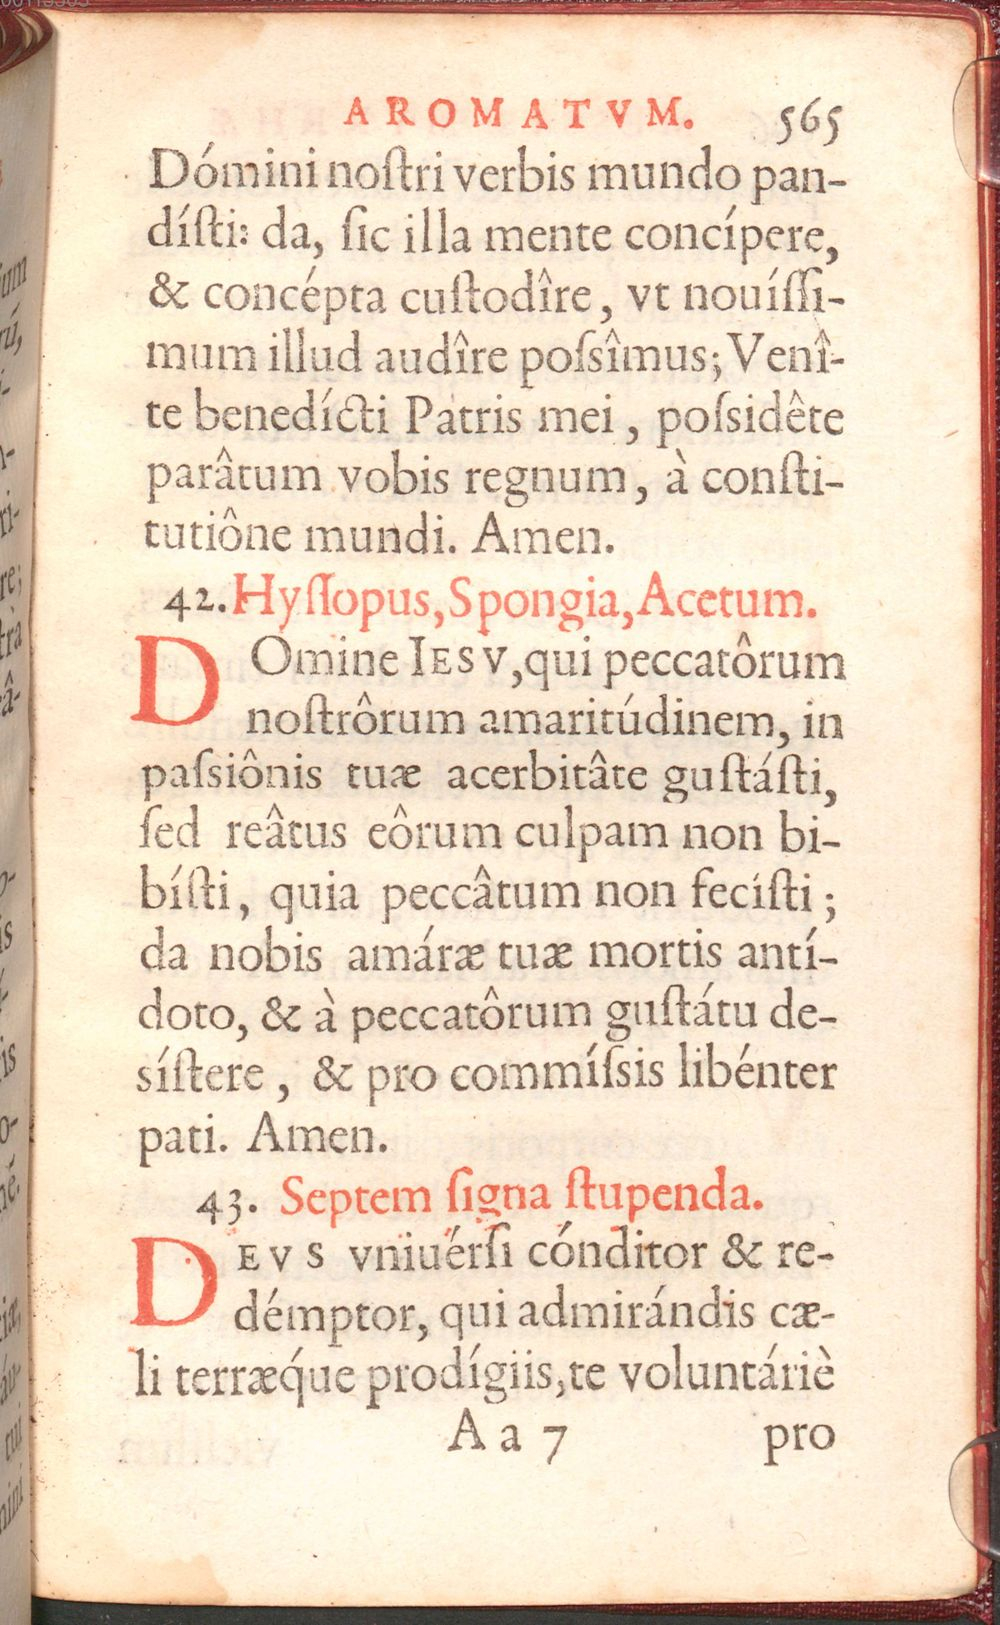 AROMATVM. 565
Dómini noſtri verbis mundo pan-
díſti: da, ſic illa mente concípere,
& concépta cuſtodîre, vt nouíſſi-
mum illud audîre poſsîmus; Venî-
te benedícti Patris mei, poſsidête
parâtum vobis regnum, à conſti-
tutiône mundi. Amen.
42. Hyſſopus, Spongia, Acetum.
DOmine IESV, qui peccatôrum
noſtrôrum amaritúdinem, in
paſsiônis tuæ acerbitâte guſtáſti,
ſed reâtus eôrum culpam non bi-
bíſti, quia peccâtum non fecíſti;
da nobis amáræ tuæ mortis antí-
doto, & à peccatôrum guſtátu de-
síſtere, & pro commíſsis libénter
pati. Amen.
43. Septem ſigna ſtupenda.
DEVS vniuérſi cónditor & re-
démptor, qui admirándis cæ-
li terræque prodígiis, te voluntáriè
Aa 7 pro